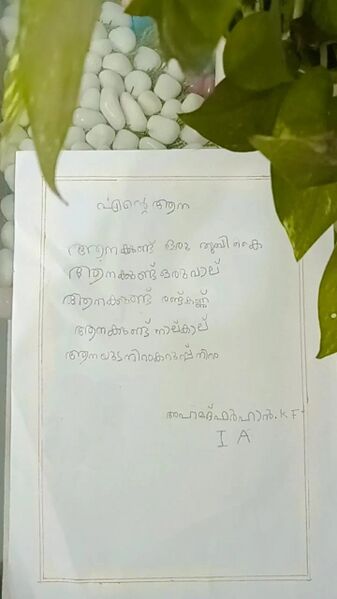 എന്റെ ആന
ആനക്കുണ്ട് ഒരു തുമ്പികൈ
ആനക്കുണ്ട് ഒരുവാല്
ആനക്കുണ്ട് രണ്ട്കണ്ണ്
ആനക്കുണ്ട് നാല്കാല്
ആനയുടനിറംകറുപ്പ്നിറം
അഹമദ്ഫർഹാൻ.K F
I A